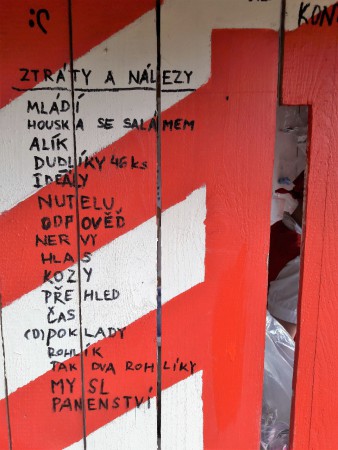 :C
KON
ZTRÁTY A NÁLEZY
MLÁDÍ
HOUSKA SE SALÁMEM
ALÍK
DUDLÍKY 46 ks
IDEÁLY
NUTELU
ODPOVĚĎ
NERVY
HLAS
KOZY
PŘEHLED
ČAS
(D)POKLADY
ROHLÍK
TAK DVA ROHLÍKY
MYSL
PANENSTVÍ